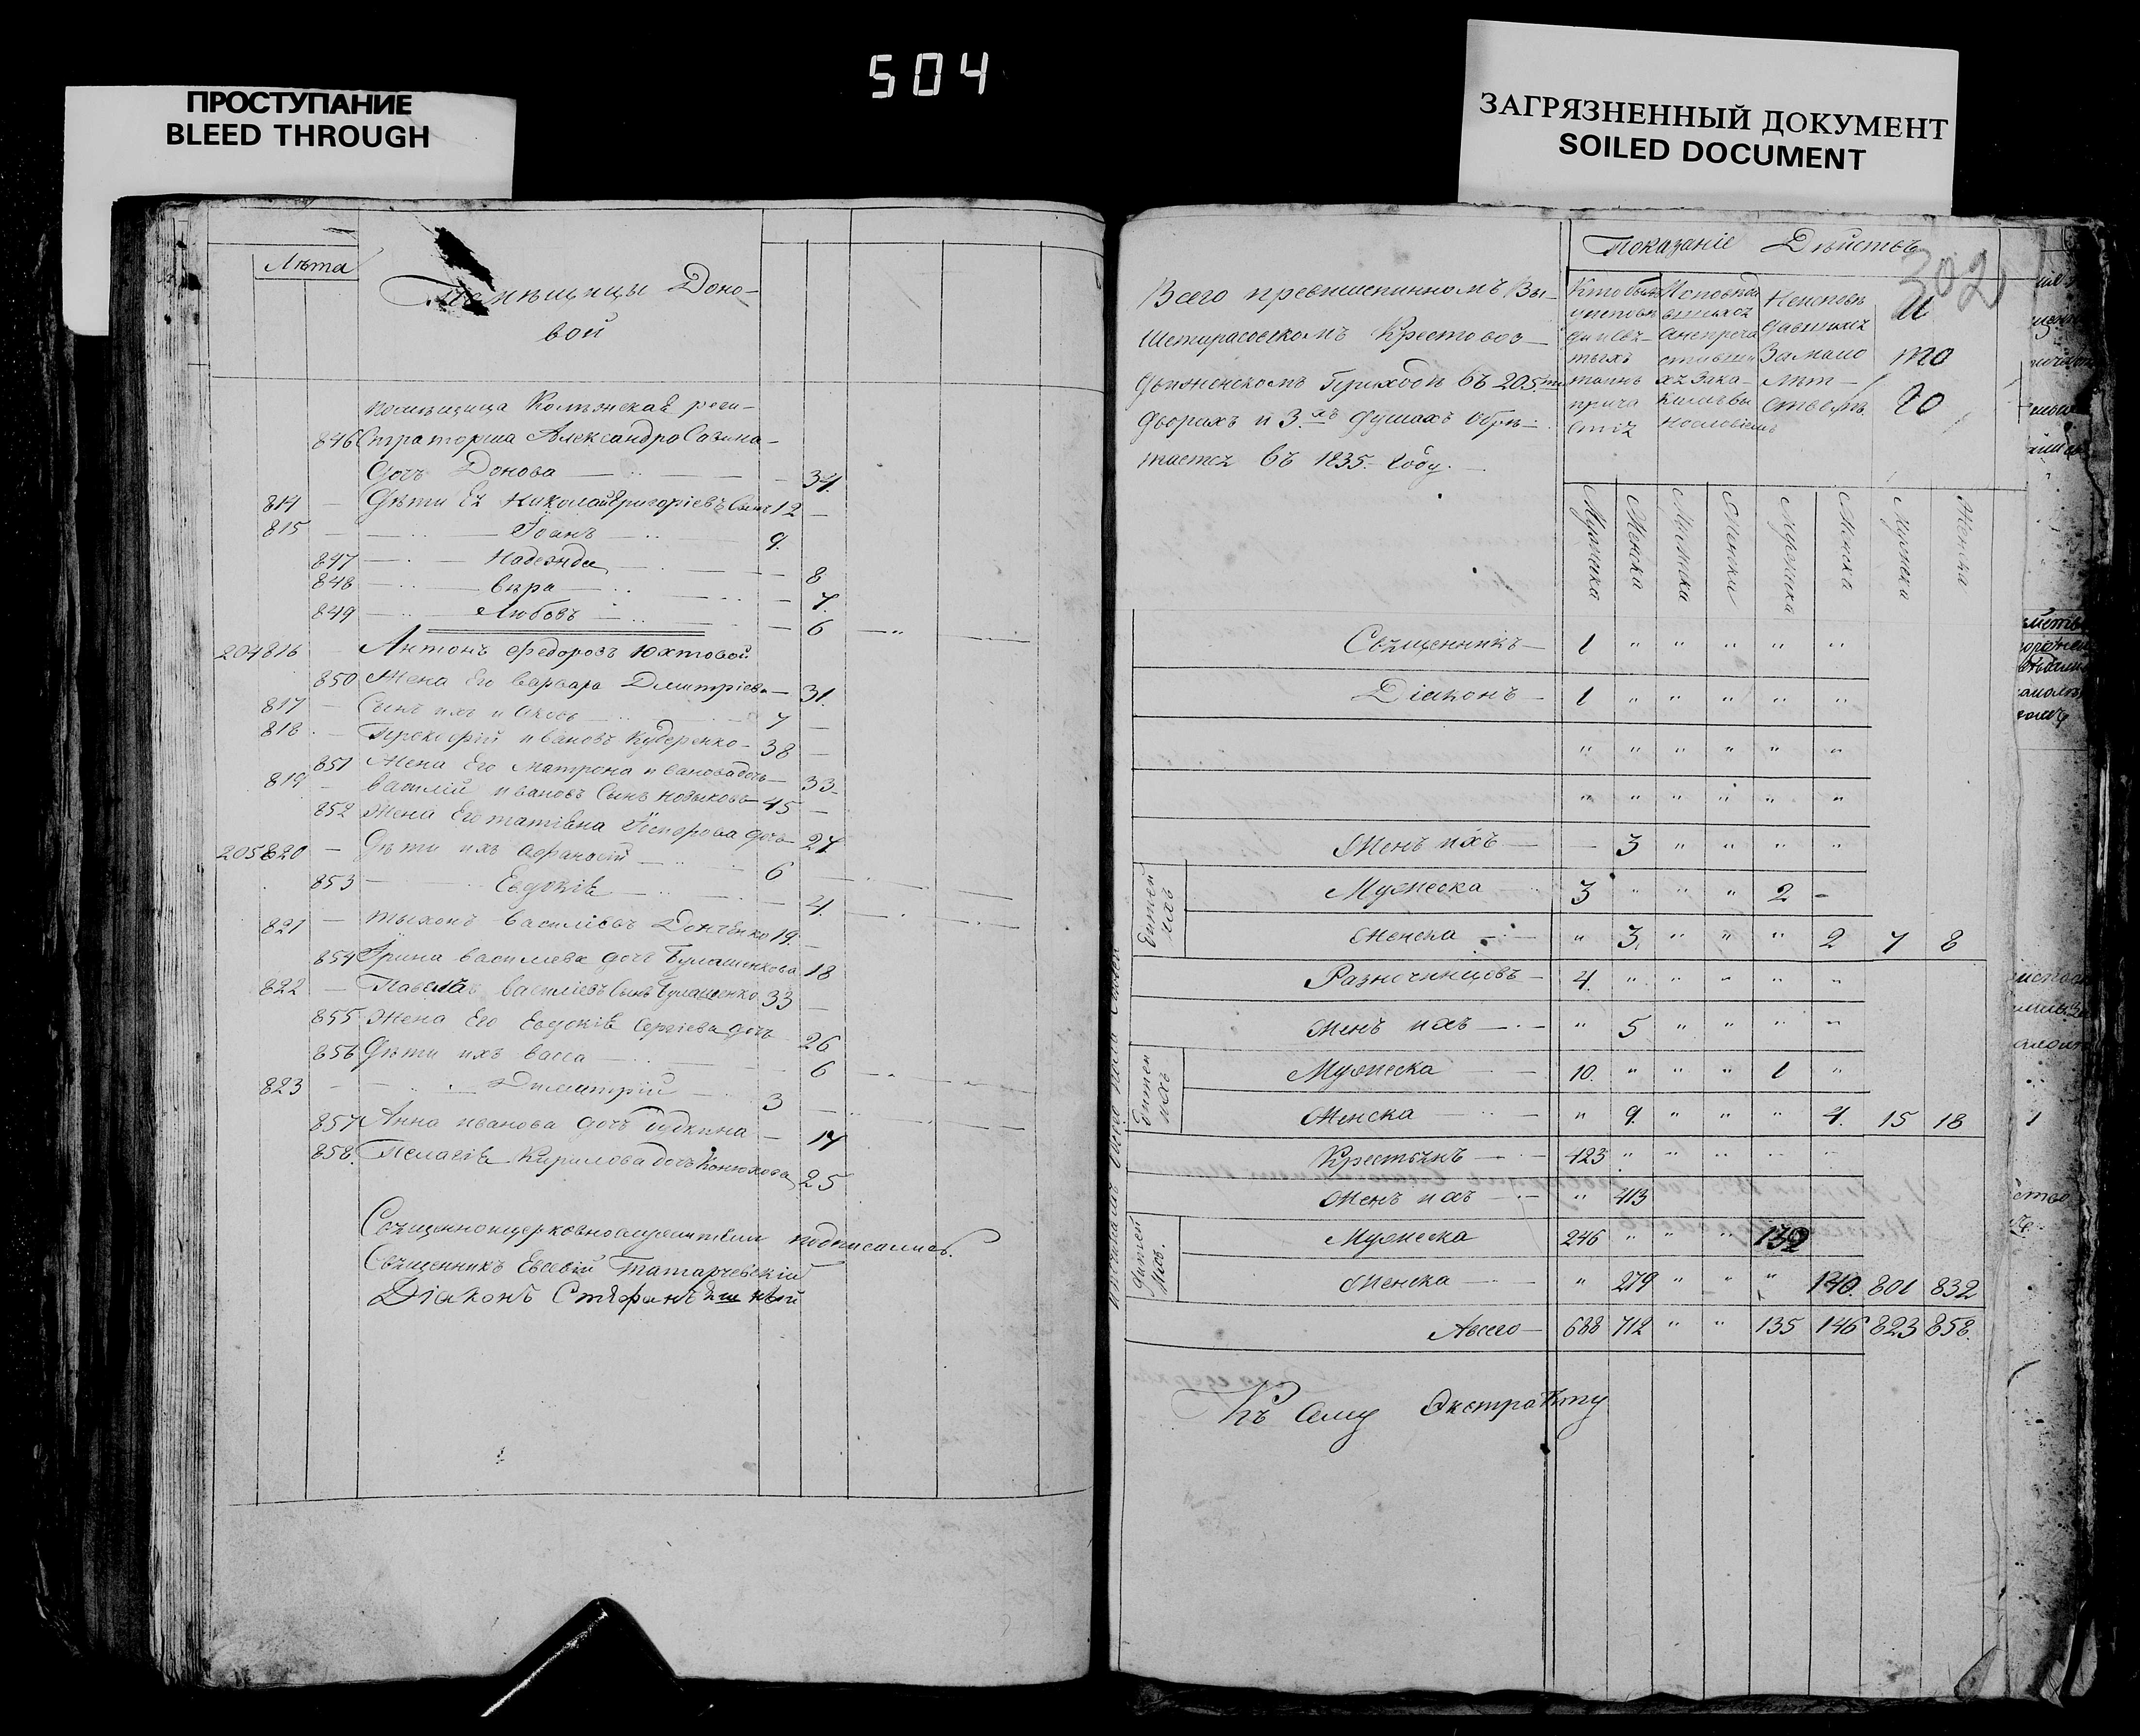 504
ПРОСТУПАНИЕ
BLEED THROUGH
ЗАГРЯЗНЕННЫЙ ДОКУМЕНТ
SOILED DOCUMENT
Лѣта
Помѣщицы Доно-
вой
помѣщица Колѣжская реги-
846 страторша Александра Савина
дочь Донова 34.
814 Дѣти Ея Николай Григоріевъ Сынъ 12
815 Іоанъ 9.
847 Надежда 8
848 Вѣра 7.
849 Любовь 6
204 816 Антонъ Федоровъ Юхтовой
850 Жена Его Варвара Дмитріева 31.
817 Сынъ ихъ Иаковъ 7
818 Прокофій Ивановъ Кудеренко 38
851 Жена Его Матрона Иванова дочь 33.
819 Василій Ивановъ Сынъ Новыковъ 45
852 Жена Его Татіяна дочь 27.
205 820 Дѣти ихъ Афанасій 6
853 Евдокія 4.
821 Тыхонъ Василіевъ Донченко 19.
854 Ірина Василиева дочь Булашенкова 18
822 Павелъ Василіевъ Сынъ Булашенко 33
855 Жена Его Евдокія Сергіева дочь 26
856 Дѣти ихъ Васса 6
823 Димитрій 3
857 Анна Иванова дочь 17
858. Пелагія Кирилова дочь Конюхова 25
Священноцерковнослужители подписались.
Священникъ Евсевій Татарчевскій
Діаконъ Стефанъ
Показаніе Дѣйствъ
302
Всего превышеписанномъ Вы-
шетарасовскомъ Крестовоз-
движенскомъ Приходѣ въ 205.ти
дворахъ и 3.хъ душахъ обрѣ-
тается въ 1835. Году.
И
то
го
Мужеска Женска Мужеска Женска Мужеска Женска Мужеска Женска
Священникъ 1 " " " " "
Діаконъ 1 " " " " "
" " " " " "
" " " " " "
Женъ ихъ — 3 " " " "
Дѣтей ихъ
Мужеска 3 " " " 2 -
Женска " 3. " " " 2 7 8
Разночинцовъ 4. " " " " "
Женъ ихъ " 5 " " " "
Дѣтей ихъ
Мужеска 10. " " " 1 "
Женска " 9. " " " 4. 15 18
Крестьянъ 423 " " " " "
Женъ ихъ " 413
Дѣтей ихъ.
Мужеска 246 " " " 132
Женска " 279 " " " 140. 801 832
Авсего 688 712 " " 135 146 823 858.
Къ Сему Экстракту